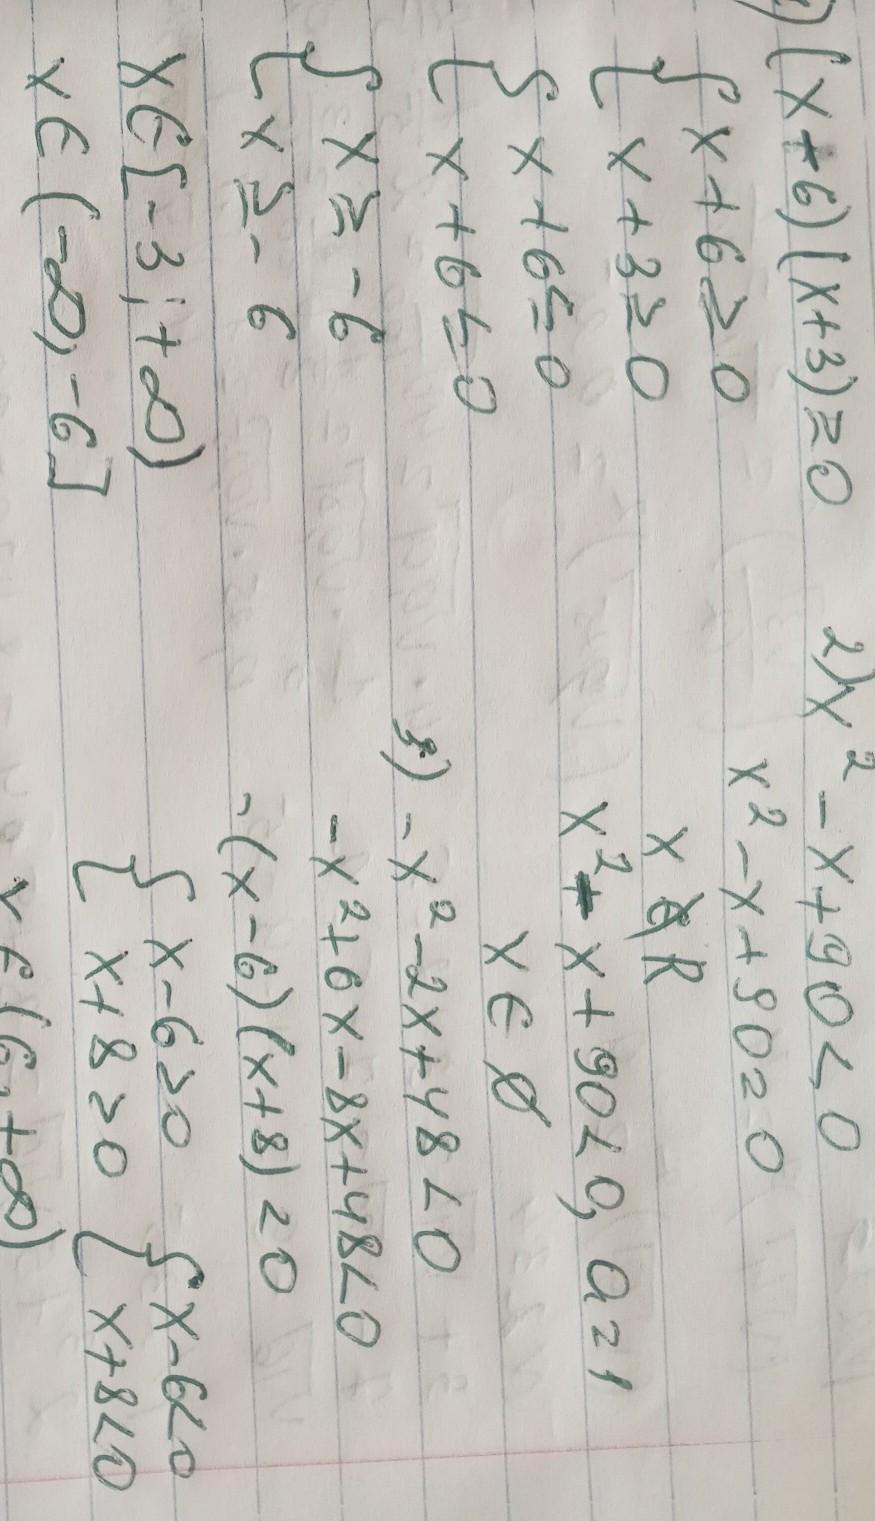 1) (x+6)(x+3)≥0
{ x+6≥0
{ x+3≥0
{ x+6≤0
{ x+6≤0
{ x≥-6
{ x≥-6
x∈[-3;+∞)
x∈(-∞,-6]
2) x²-x+90<0
x²-x+90=0
x∉R
x²-x+90<0, a=1
x∈∅
3) -x²-2x+48<0
-x²+6x-8x+48<0
-(x-6)(x+8)=0
{ x-6>0 { x-6<0
{ x+8>0 { x+8<0
x∈(6,+∞)